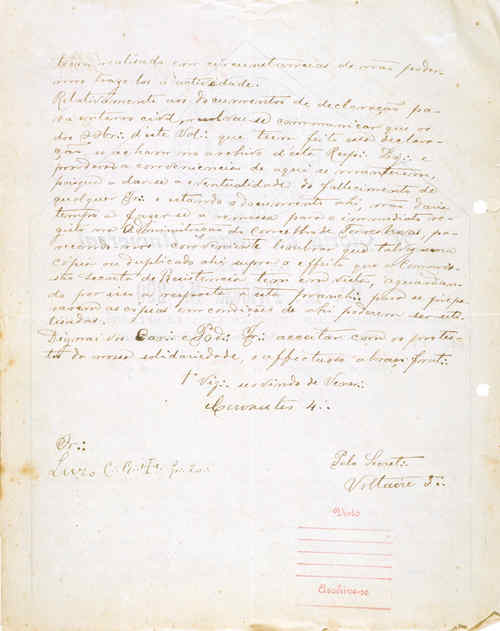 realisado com circumstancias de não poder
mos traze los á actividade.
Relativamente aos documentos de declaração pa
ra enterro civil, communicar que os
dos Obr∴ d'esta Vol∴ que teem feito essa declara
ção se acham no archivo d'esta Resp∴ Loj∴ e
ponderar a conveniencia de aqui se manterem,
porque a dar-se a eventualidade do fallecimento de
qualquer Ir∴ e estando o documento ahi, não daria
tempo a fazer-se a remessa para o immediato re-
gisto na Administração do Concelho de Torres Novas, pa
recendo-nos conveniente lembrar que talvez uma
copia ou duplicado ahi supra o effeito que a Comm
são de tem em vista, aguardan
do por isso a resposta a esta prancha para se prepa
rarem as copias em condições de ahi poderem ser
Dignai vos Caris∴ e Pod∴ Ir∴ acceitar com os protes
tos da nossa solidariedade, o affectuoso abraço frat∴
1º Vig∴ servindo de Ven∴
Cervantes 4∴
Ir∴
Luzo C∴
Pelo Secret∴
Voltaire 3∴
Visto
Archive-se